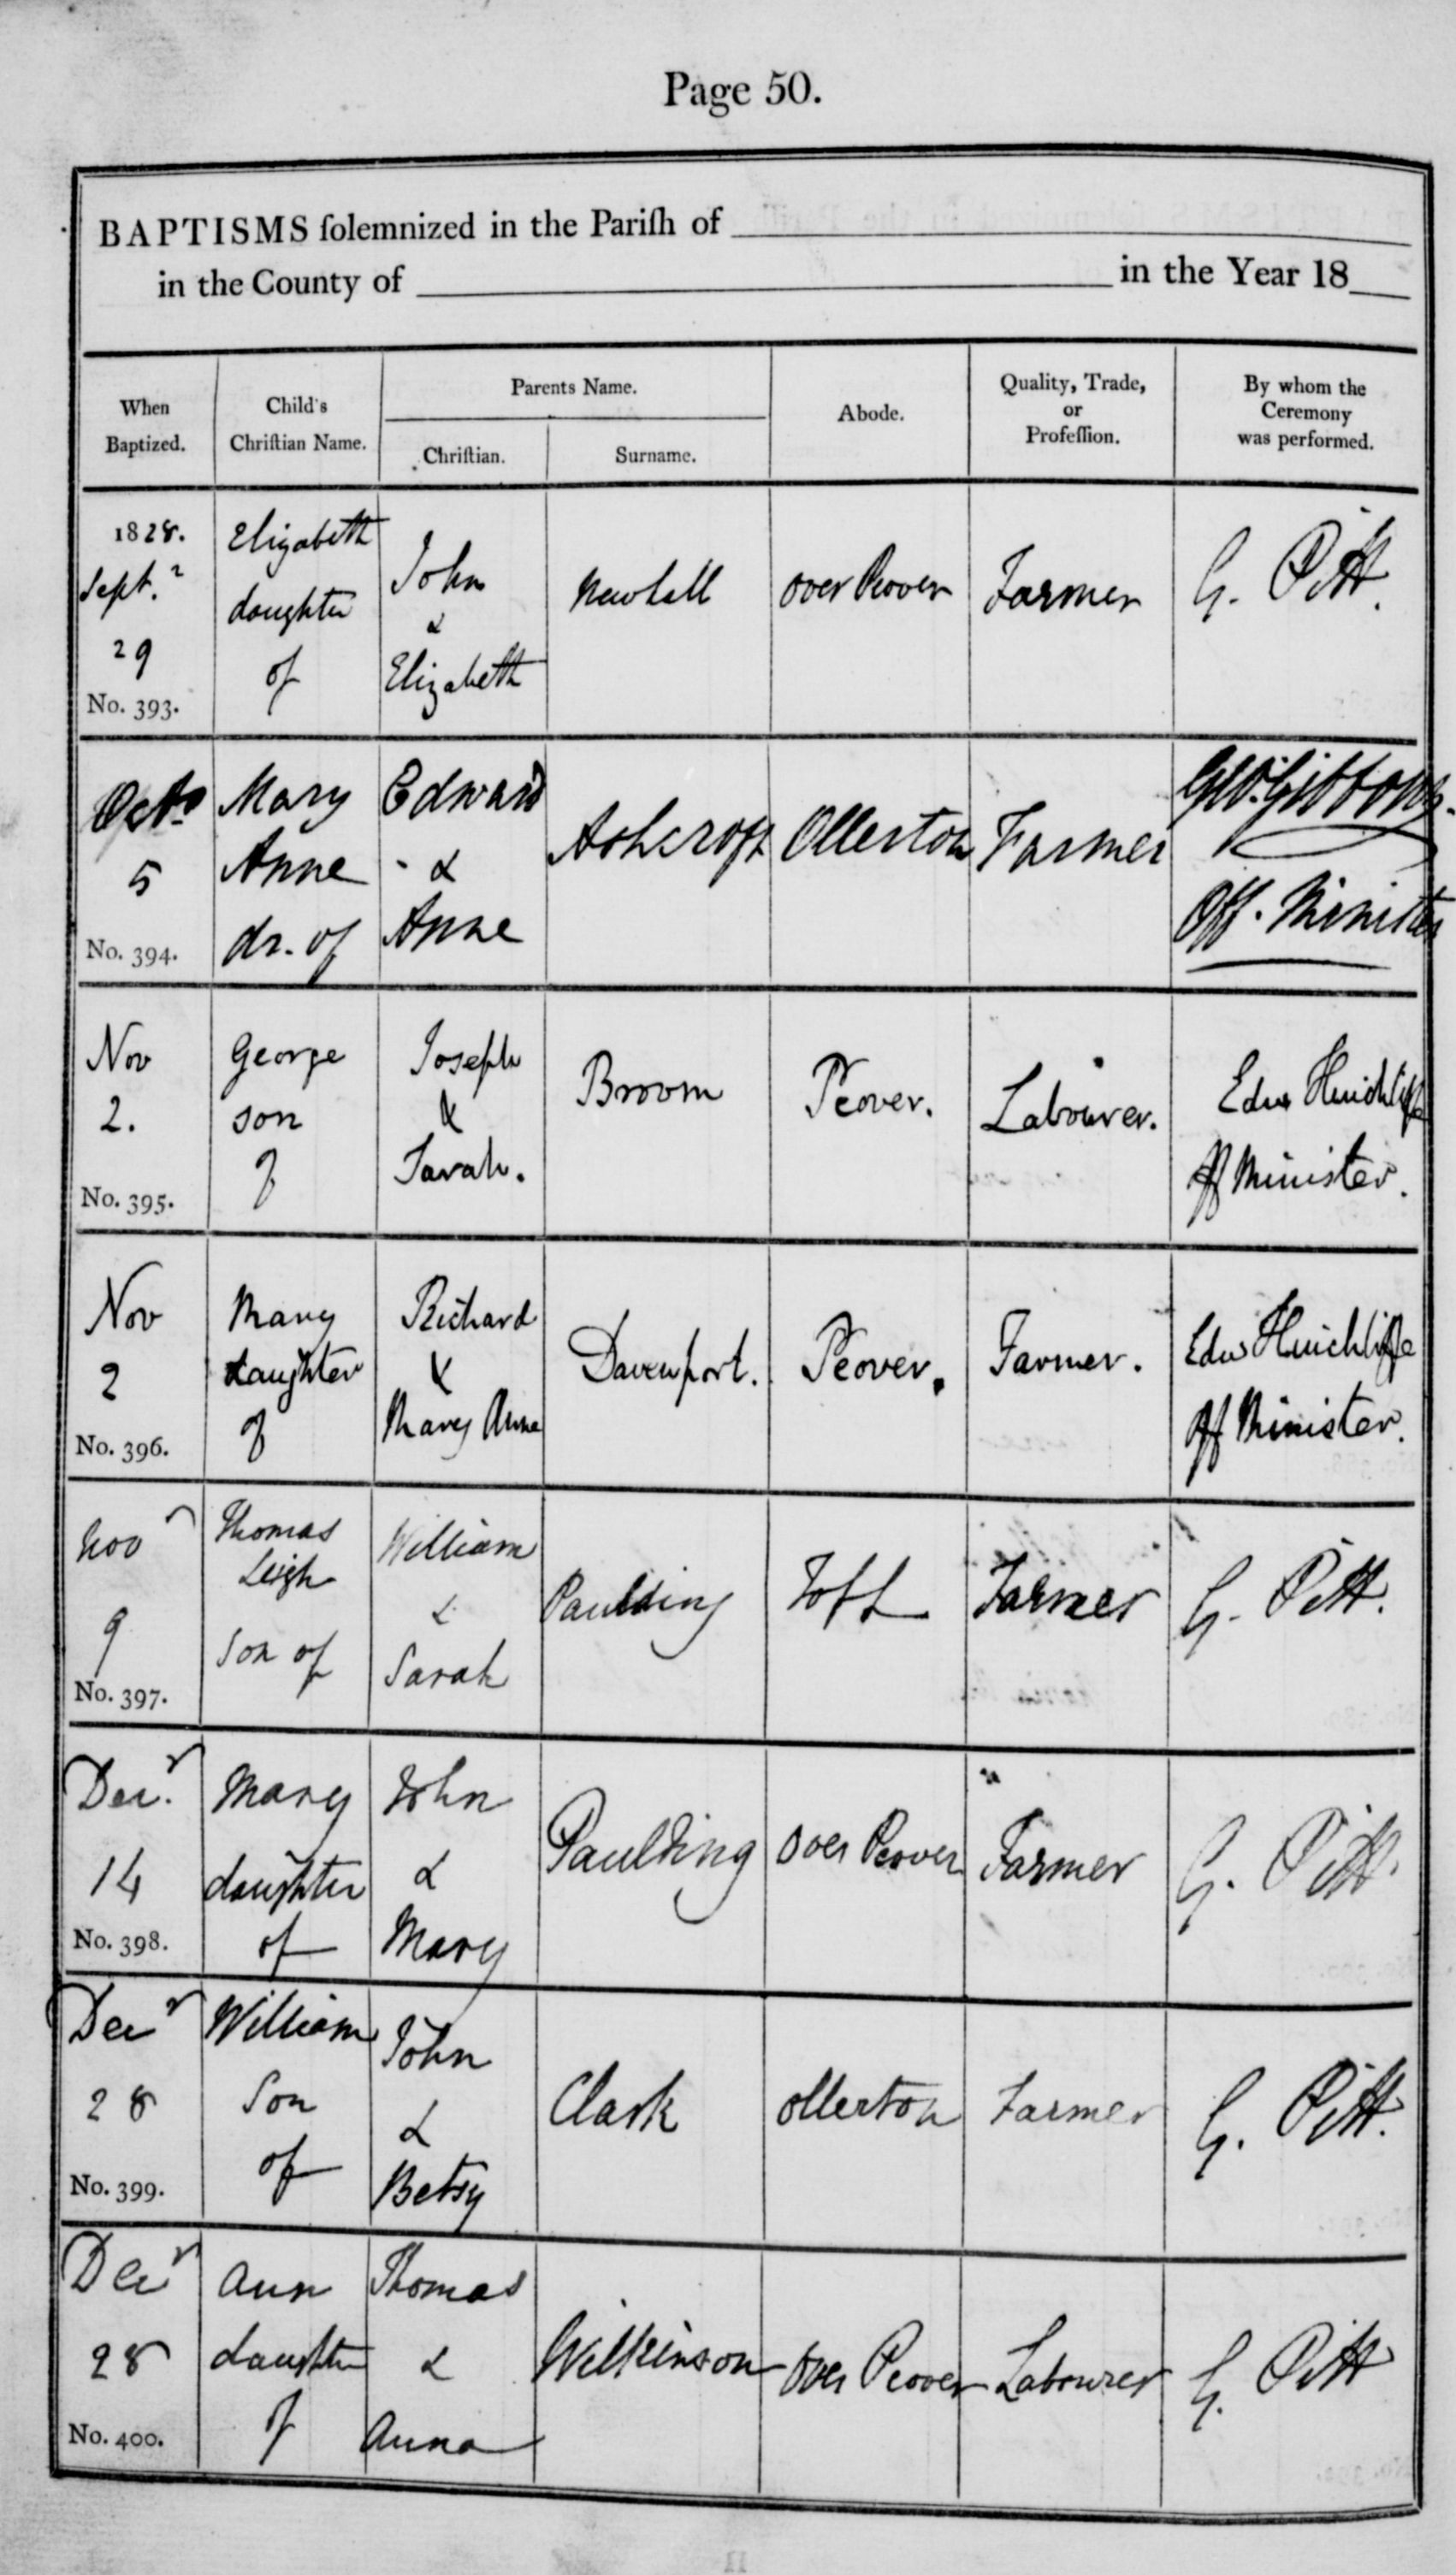 Page 50.
BAPTISMS ſolemnized in the Pariſh of
in the County of in the Year 18
When
Baptized.
Child's
Chriſtian Name.
Parents Name.
Chriſtian.
Surname.
Abode.
Quality, Trade,
or
Profeſſion.
By whom the
Ceremony
was performed.
1828.
Sept.r
29
No. 393.
Elizabeth
daughter
of
John
&
Elizabeth
Newhall
over Peover
Farmer
G. Pitt.
Octr
5
No. 394.
Mary
Anne
dr. of
Edward
&
Anne
Ashcroft
Ollerton
Farmer
Geo. Gibbons.
Off. Minister
Nov
2.
No. 395.
George
son
of
Joseph
&
Sarah.
Broom
Peover.
Labourer.
Edw Hinchliffe
Off Minister.
Nov
2
No. 396.
Mary
daughter
of
Richard
&
Mary Anne
Davenport.
Peover.
Farmer.
Edw Hinchliffe
Off Minister.
Novr
9
No. 397.
Thomas
Leigh
Son of
William
&
Sarah
Paulding
Toft
Farmer
G. Pitt.
Decr.
14
No. 398.
Mary
daughter
of
John
&
Mary
Paulding
Over Peover
Farmer
G. Pitt.
Decr
28
No. 399.
William
Son
of
John
&
Betsy
Clark
Ollerton
Farmer
G. Pitt.
Decr
28
No. 400.
Ann
daughter
of
Thomas
&
Anna
Wilkinson
Over Peover
Labourer
G. Pitt